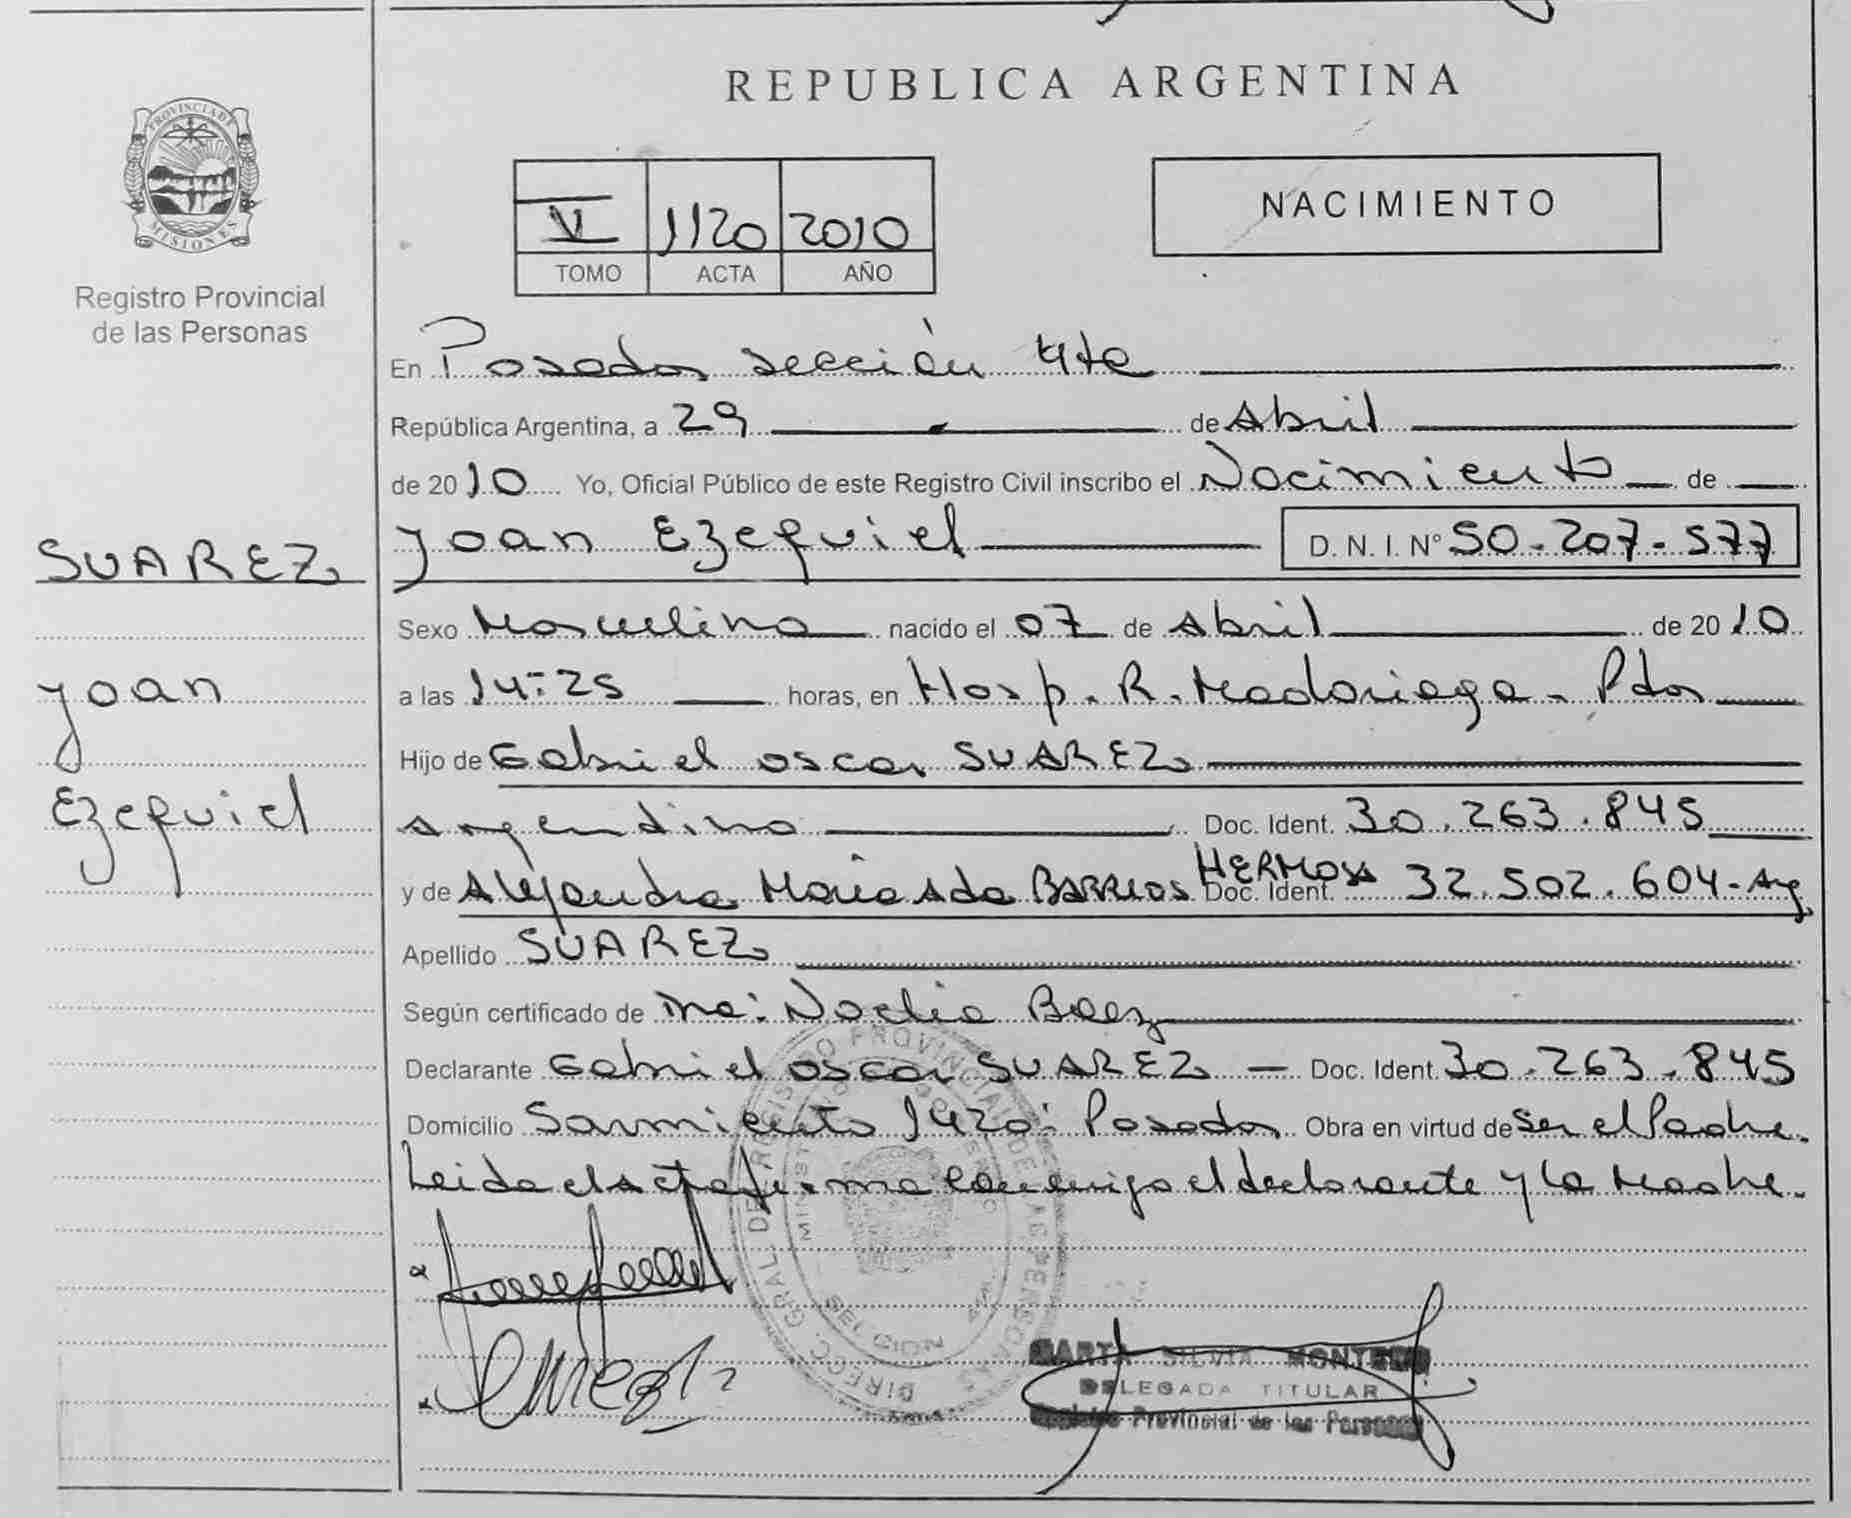 REPUBLICA ARGENTINA
PROVINCIA DE
MISIONES
Registro Provincial
de las Personas
V 1120 2010
TOMO ACTA AÑO
NACIMIENTO
En Posadas sección 4ta
República Argentina, a 29 de Abril
de 2010 Yo, Oficial Público de este Registro Civil inscribo el Nacimiento de
SUAREZ
Joan
Ezequiel
Joan Ezequiel D. N. I. N° 50-207-577
Sexo Masculino nacido el 07 de Abril de 2010
a las 14:25 horas, en Hosp. R. Madariaga - Pdas
Hijo de Gabriel Oscar SUAREZ
argentino Doc. Ident. 30.263.845
y de Alejandra Maria Ada BARRIOS HERMOSA Doc. Ident. 32.502.604-Arg
Apellido SUAREZ
Según certificado de Noelia Baez
Declarante Gabriel Oscar SUAREZ - Doc. Ident. 30.263.845
Domicilio Sarmiento 1420 Posadas Obra en virtud de ser el Padre.
Leida el acta firma conmigo el declarante y la Madre.
DIRECC. GRAL. DE REGISTRO PROVINCIAL DE LAS PERSONAS
SILVIA
DELEGADA TITULAR
Registro Provincial de las Personas